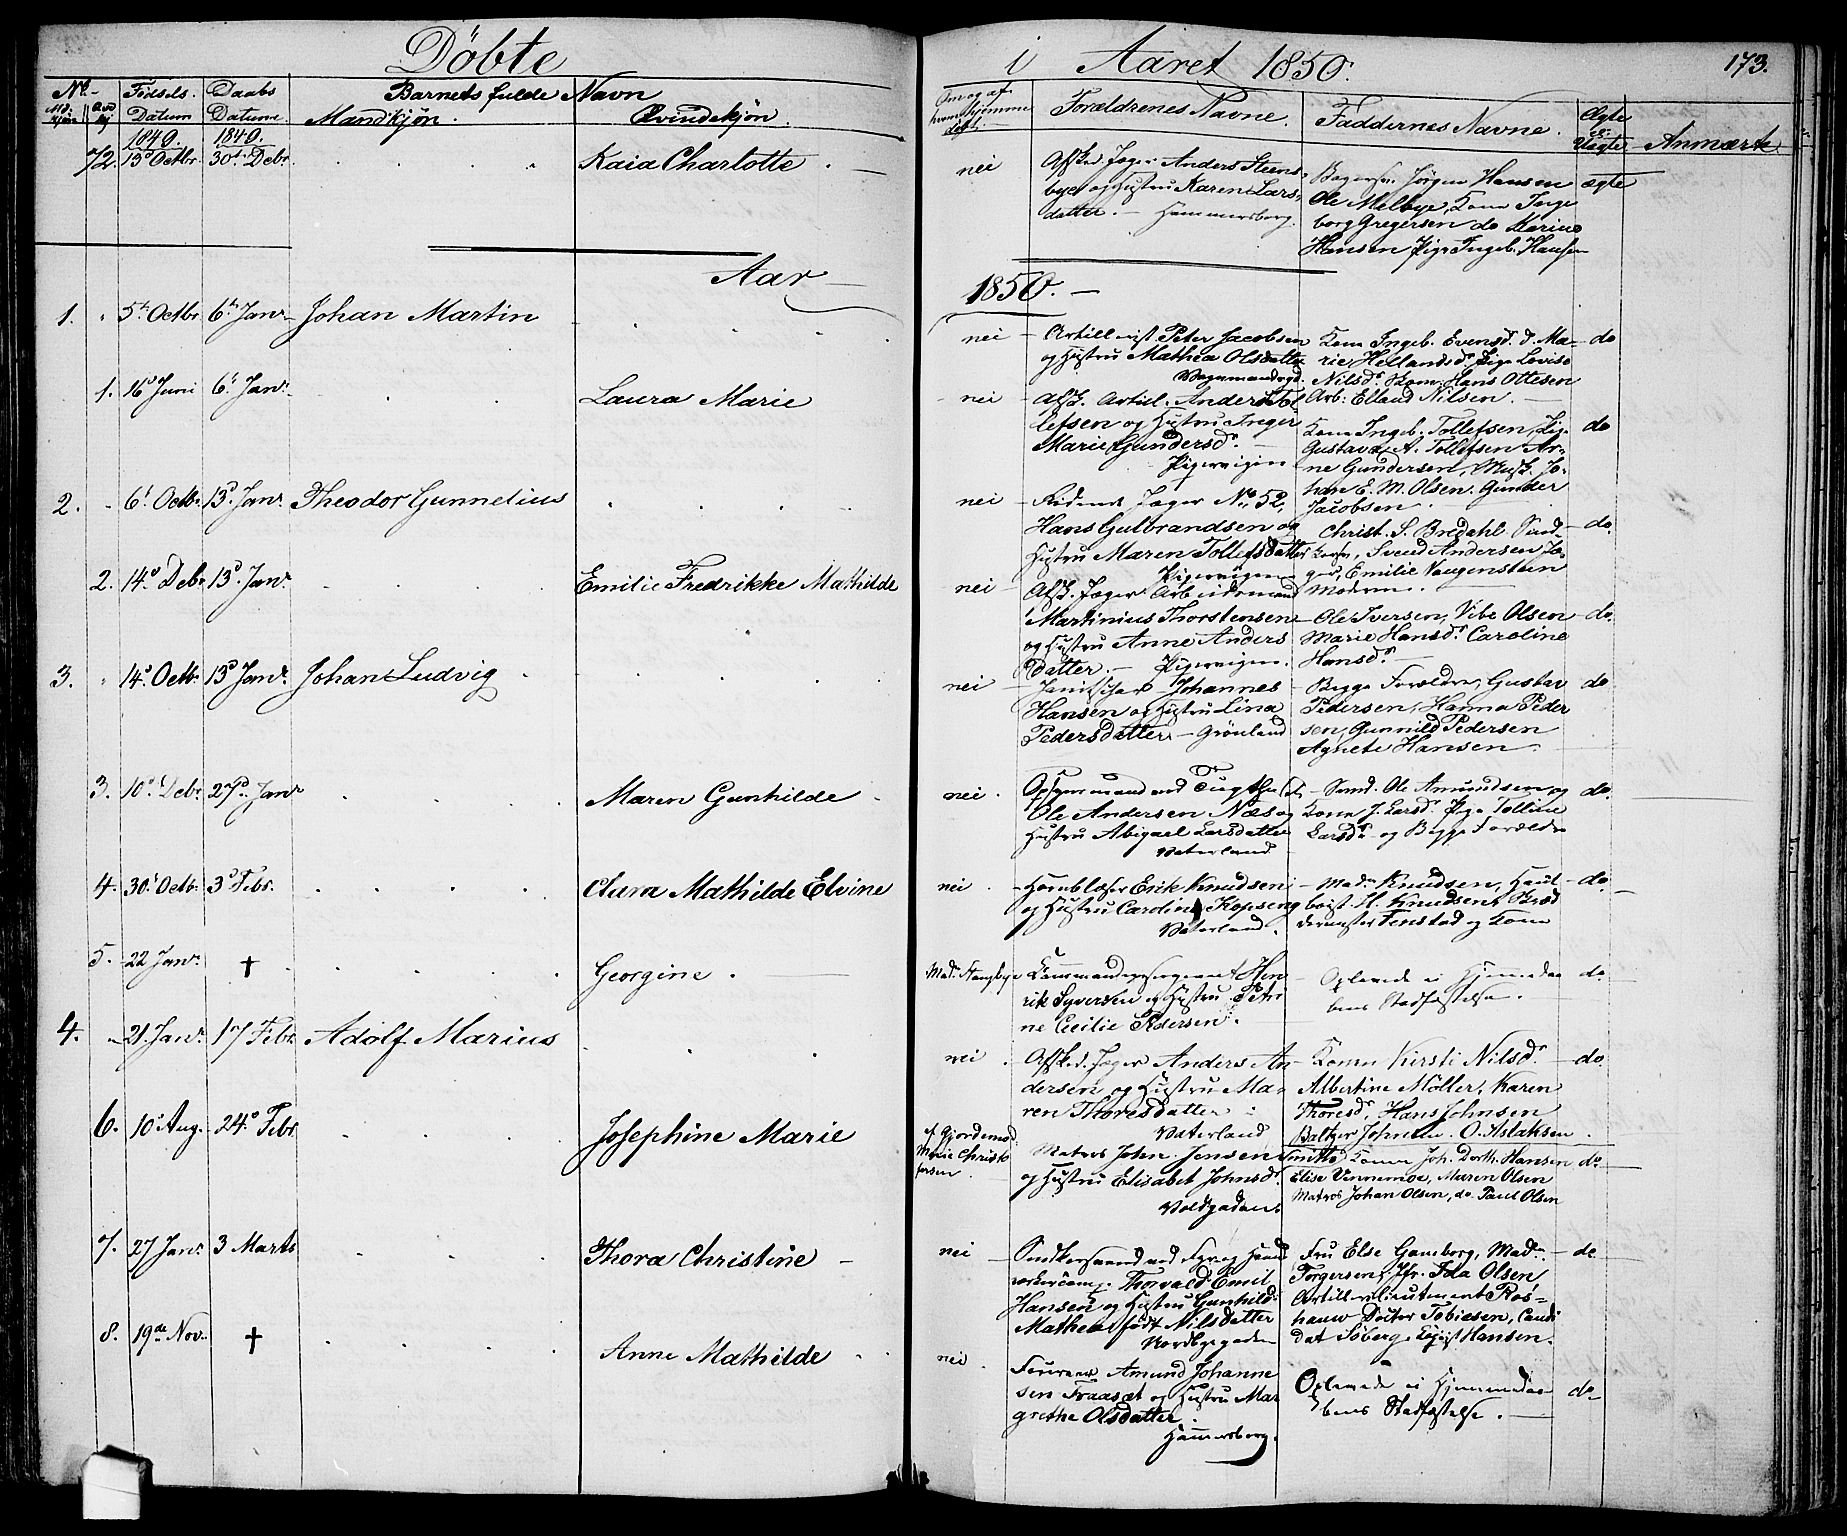 Döbte
i Aaret 1850.
173.
No. Födsels Daabs Barnets fulde Navn
Datum Datum Mandkjön. Qvindekjön.
Forældrenes Navne. Faddernes Navne. Ægte el. Uægte Anmærk
1849. 1849.
72. 13d Octbr. 30te Debr. Kaia Charlotte
nei Afsked. Jæger Anders Steens-
bye og Hustru Karen Lars-
datter. Hammersborg.
Jörgen Hansen
Ole Melbye, Kone Inge
borg Gregersen do Karine
Hansen Pige Ingeb. Hansen
ægte
Aar 1850.
1. 5te Octbr. 6te Janr. Johan Martin
nei Artillerist Peter Jacobsen
og Hustru Mathea Olsdatter
Kone Ingeb. Evensd. d. Ma-
rie Hellandsd. Pige Lovise
Nilsd. Kom: Hans Ottesen
Arb: Elland Nilsen.
do
1. 16d Juni 6t Janr. Laura Marie
nei Afsk. Artil. Anders Tol-
lefsen og Hustru Inger
Marie Gundersd.
Pipervigen
Kone Ingeb. Tollefsen, Pig.
Gustava A. Tollefsen Ar-
ne Gundersen, Musk. Jo-
han E. M. Olsen. Gunder
Jacobsen.
do
2. 6t Octbr. 13d Janr. Theodor Gunnelius
nei Ridende Jæger No. 52,
Hans Gulbrandsen og
Hustru Maren Tollefsdatter
Pipervigen
Christ. S. Bredahl
Svend Andersen Jæ-
ger, Emilie Vangensteen
Moderen.
do.
2. 14d Debr. 13d Janr. Emilie Fredrikke Mathilde
nei Afsk. Jæger Arbeidsmand
Martinius Thorstensen
og Hustru Anne Anders
datter. Pipervigen.
Ole Iversen, Vibe Olsen
Marie Hansd. Caroline
Hansd.
do.
3. 14d Octb. 13d Janr. Johan Ludvig
nei Janitschar Johannes
Hansen og Hustru Lina
Pedersdatter. Grönland
Begge Forældre, Gustav
Pedersen, Hanna Peder
sen, Gunnild Pedersen
Agnete Hansen
do
3. 10d Debr. 27d Janr Maren Gunhilde
nei. Opsynsmand ved Tugthuset
Ole Andersen Næs og
Hustru Abigael Larsdatter
Vaterland
Smd. Ole Amundsen og
Kone J. Larsd. Pige Tolline
Larsd. og Begge Forældre
do.
4. 30t Octb. 3d Febr. Clara Mathilde Elvine
nei. Hornblæser Erik Knudsen
og Hustru Caroline Kopseng
Vaterland.
Mad. Knudsen, Haut-
boist H. Knudsen,
Fenstad og Kone
do.
5. 22 Janr. † Georgine.
Mad. Stangbye Kommandersergeant Hen
rik Syversen og Hustru Petri
ne Cecilie Pedersen.
Oplevede ei Hjemmedaa
bens Stadfæstelse.
do.
4. 21. Janr. 17 Febr. Adolf Marius
nei. Afsked. Jæger Anders An
dersen og Hustru Ma-
ren Thoresdatter
Vaterland
Kone Kirsti Nilsd.
Albertine Möller, Karen
Thoresd, Hans Johnsen
Baltzer Johnsen. O. Aslaksen.
do.
6. 10d Aug. 24d Febr. Josephine Marie
af Gjordemod.
Marie Christo
fersen.
Matros John Jensen Smitt
og Hustru Elisabet Johnsd.
Voldgaden
Kone Joh. Dorth. Hansen
Elise Vennemoe, Maren Olsen
Matros Johan Olsen, do Paul Olsen
do.
7. 27 Janr. 3 Marts Thora Christine
nei
Thorvald Emil
Hansen og Hustru Gunhild
Mathea födt Nilsdatter
Nordbygaden
Fru Else Gamborg, Mad.
Torgersen, Jfr. Ida Olsen
Artillerilieutenent Ros-
hauw Doctor Tobiesen, Candi
dat Söberg, Copist Hansen.
do
8. 19de Nov. † Anne Mathilde
nei. Amund Johanne
sen Fraasæt og Hustru Mar
grethe Olsdatter.
Hammersborg.
Oplevede ei Hjemmedaa
bens Stadfæstelse.
do